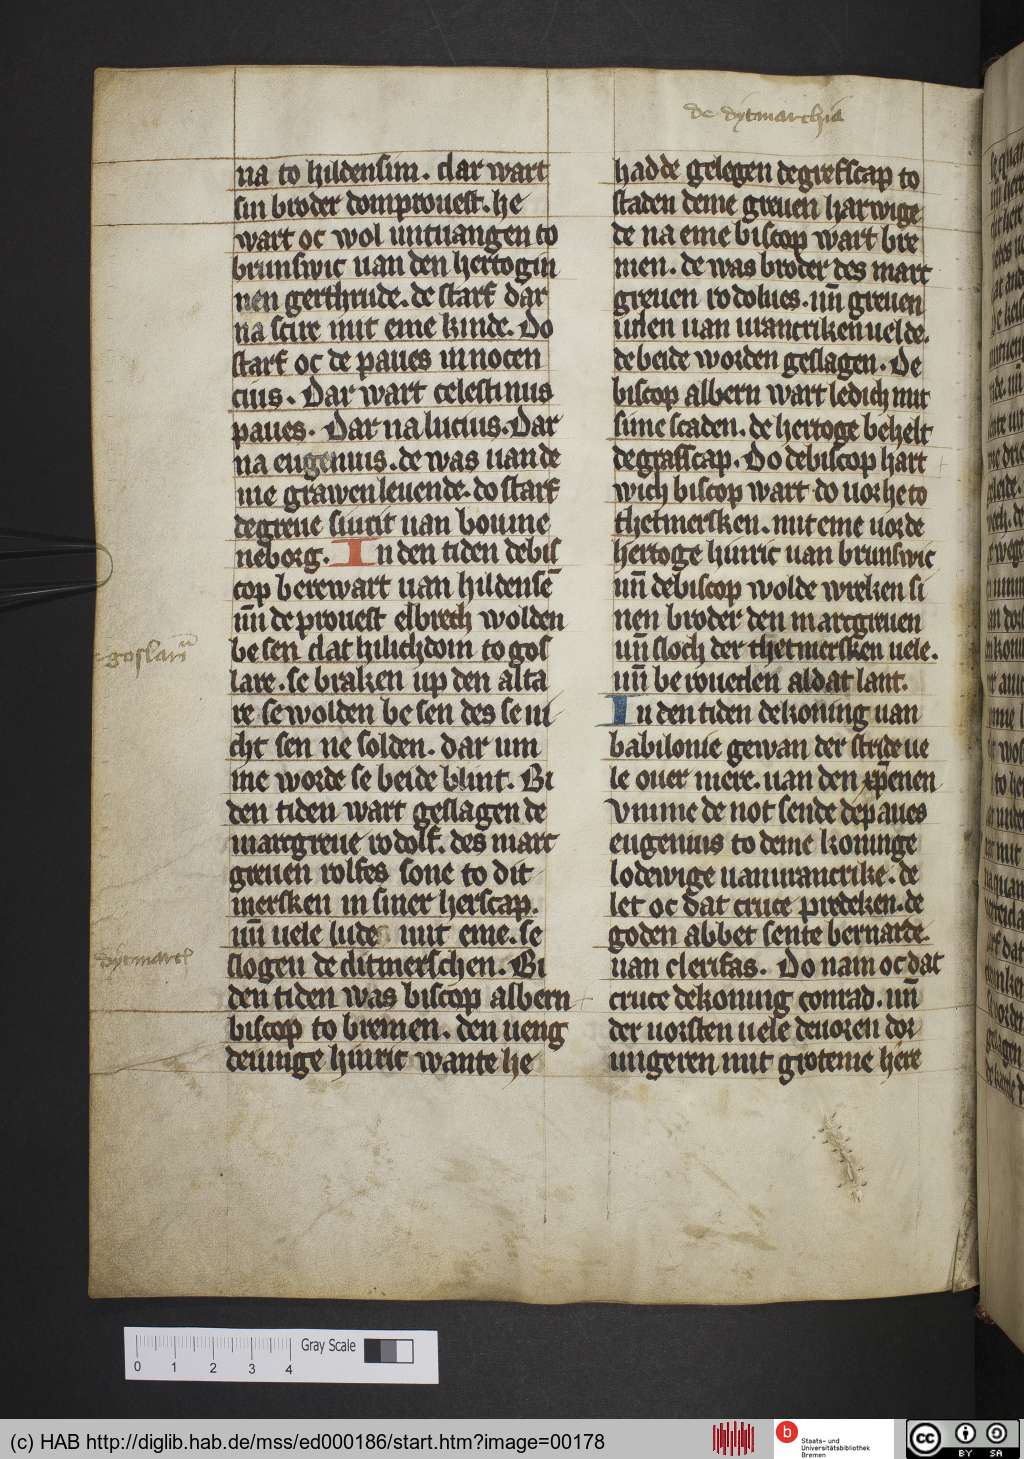 de dytmarchia
na to hildensim. dar wart
sin broder domprouest. he
wart oc wol untuangen to
brunswic uan den hertogin
nen gerthrude. de starf dar
na scire mit eme kinde. Do
starf oc de paues innocen
cius. Dar wart celestinus
paues. Dar na lucius. Dar
na eugenius. de was uan de
me grawen leuende. do starf
de greue siurit uan boume
neborg. In den tiden de bis
cop berewart uan hildensē
un̄ de prouest elbrech wolden
be sen dat hilichdom to gos
lare. se braken up den alta
re. se wolden be sen des se ni
cht sen ne solden. dar um
me worde se beide blint. Bi
den tiden wart geslagen de
marcgreue rodolf. des marc
greuen rolfes sone to dit
mersken in siner herscap.
un̄ uele lude mit eme. se
slogen de ditmerschen. Bi
den tiden was biscop albern
biscop to bremen. den ueng
de iunge hinric wante he
goslarīa
dytmarch
hadde gelegen de grefscap to
staden deme greuen harwige
de na eme biscop wart bre
men. de was broder des marc
greuen rodolues. un̄ greuen
uden uan urancriken uelde.
de beide worden geslagen. De
biscop albern wart ledich mit
sime scaden. de hertoge behelt
de grafscap. Do de biscop hart
wich biscop wart do uor he to
thetmersken. mit eme uor de
hertoge hinric uan brunswic
un̄ de biscop wolde wreken si
nen broder den marcgreuen
un̄ sloch der thetmersken uele.
un̄ be roueden al dat lant.
In den tiden de koning uan
babilonie gewan der stede ue
le ouer mere. uan den xp̄enen
Vmme de not sende de paues
eugenius to deme koninge
lodewige uan urancrike. de
let oc dat cruce predeken. de
goden abbet sente bernarde.
uan clerifas. Do nam oc dat
cruce de koning conrad. un̄
der uorsten uele de uoren dor
ungeren mit groteme here
Gray Scale
0 1 2 3 4
(c) HAB http://diglib.hab.de/mss/ed000186/start.htm?image=00178
b
Staats- und
Universitätsbibliothek
Bremen
cc
BY SA